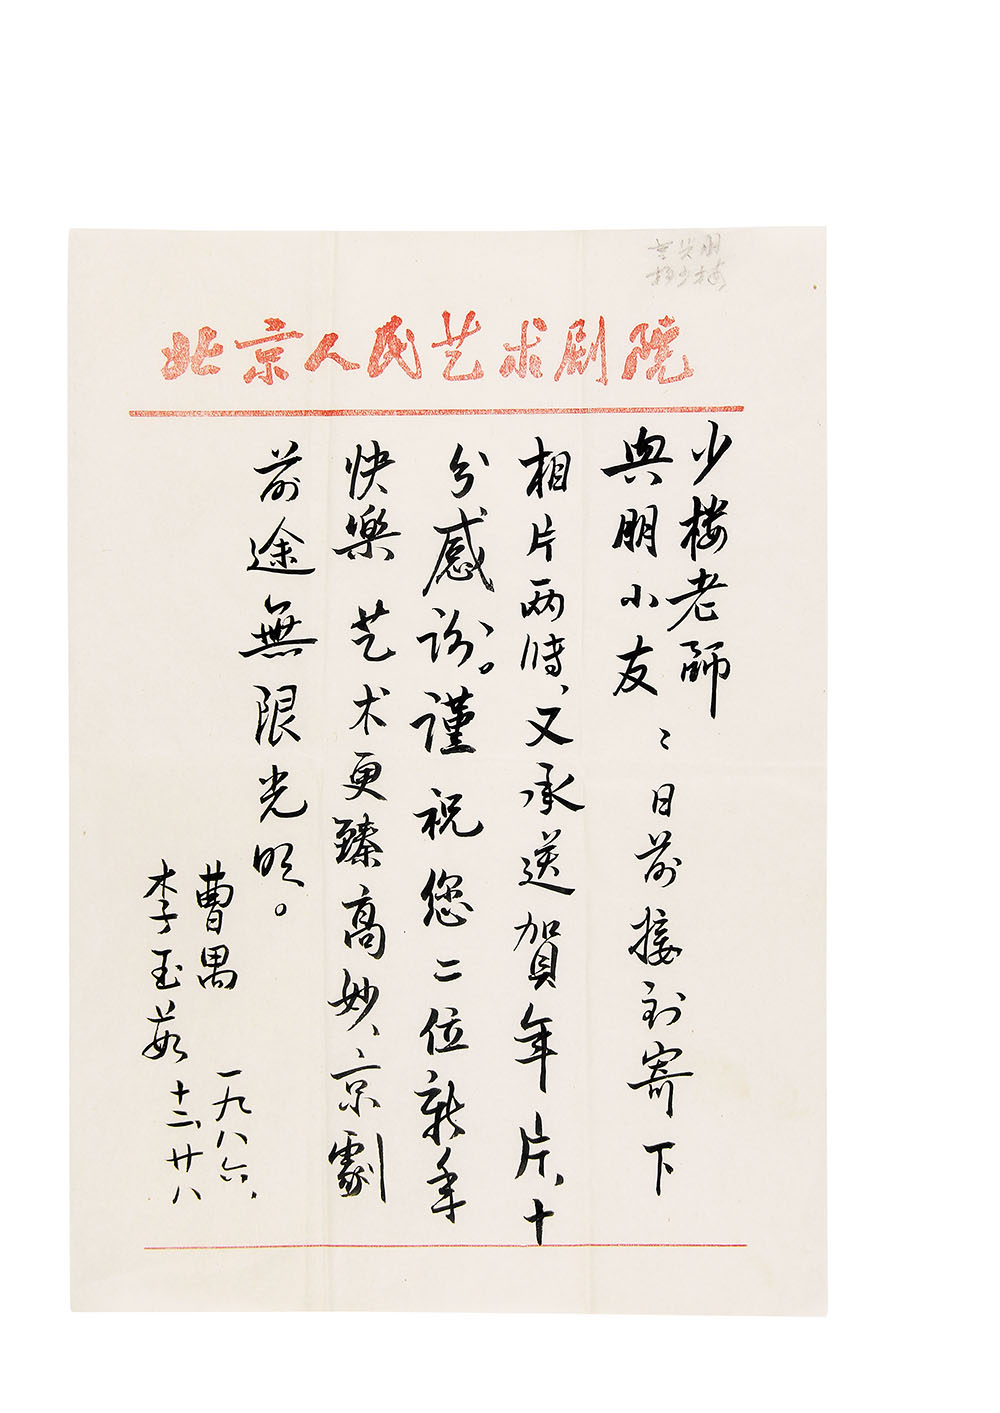 言兴朋
北京人民艺术剧院
少楼老師
興朋小友：日前接到寄下
相片两帧、又承送賀年片、十
分感谢。謹祝您二位新年
快樂 艺术更臻高妙、京劇
前途無限光明。
曹禺
李玉茹
一九八六、
十二、廿八